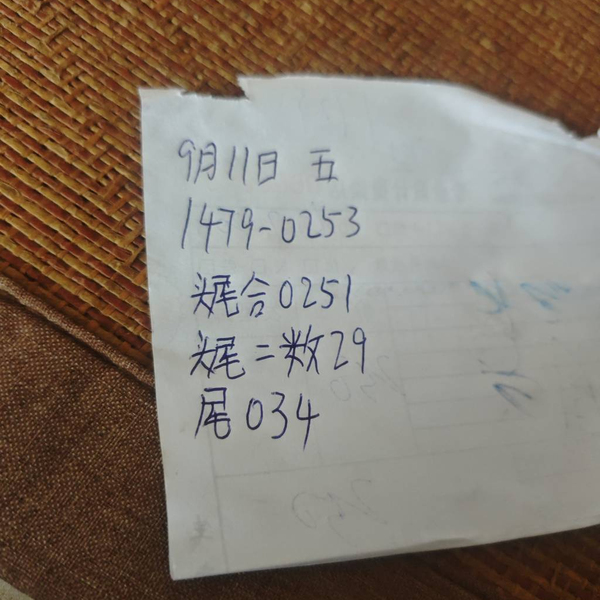 9月11日 五
1479-0253
头尾合0251
头尾二数29
尾034